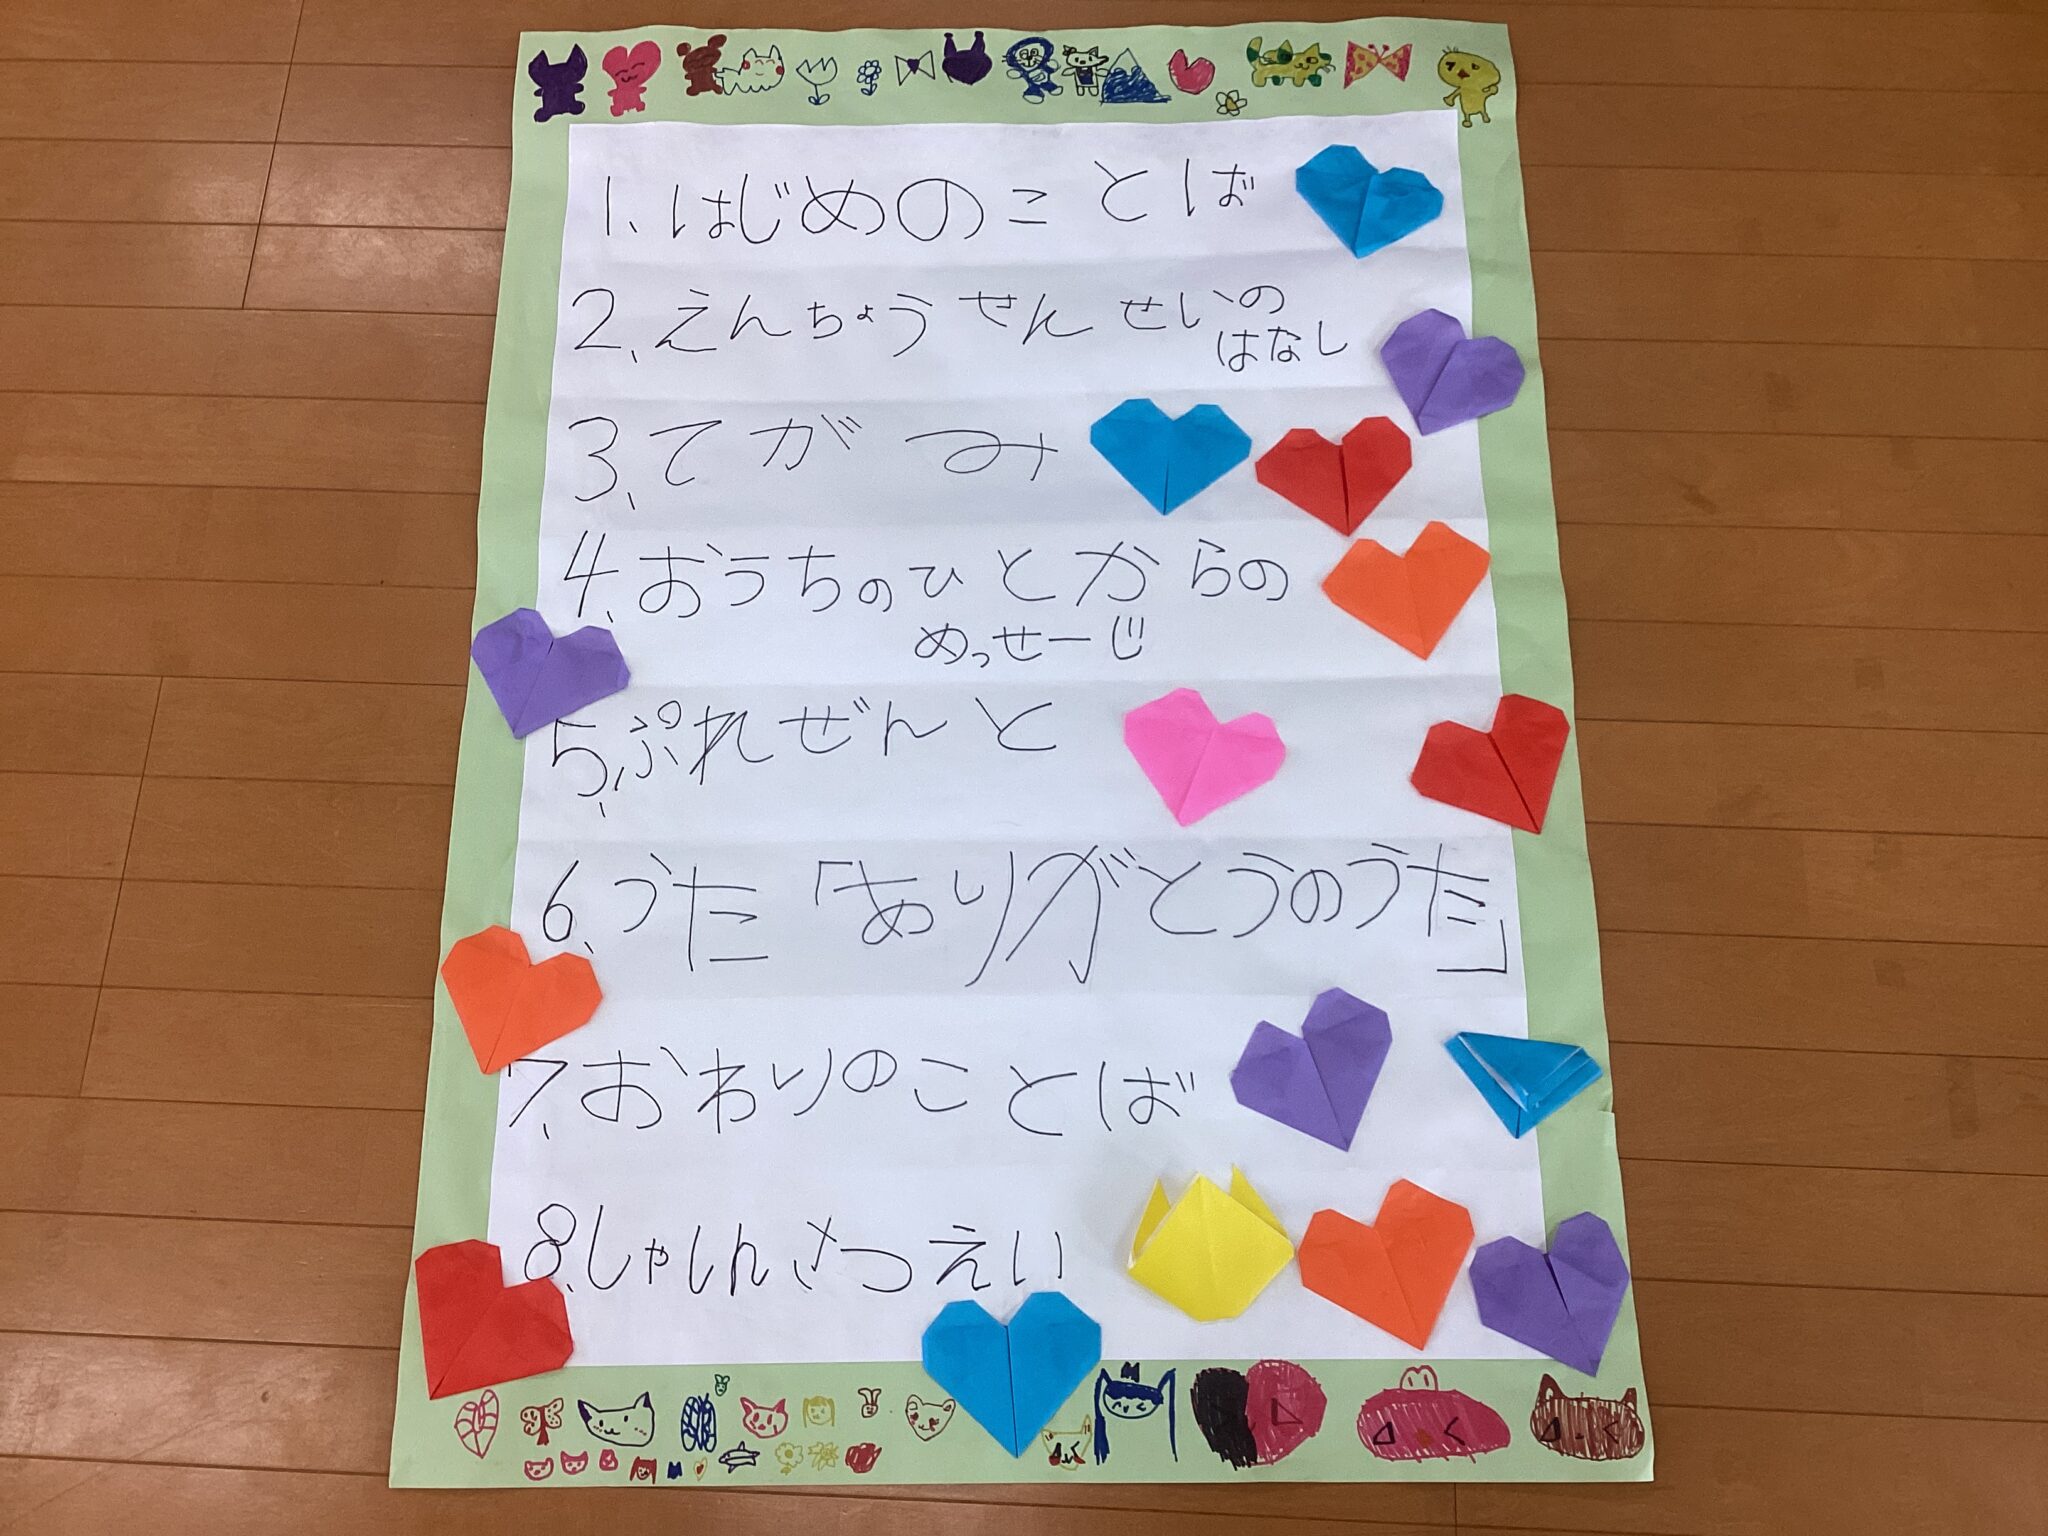 1、はじめのことば
2、えんちょうせんせいの
はなし
3、てがみ
4、おうちのひとからの
めっせーじ
5、ぷれぜんと
6、うた「ありがとうのうた」
7、おわりのことば
8、しゃしんさつえい